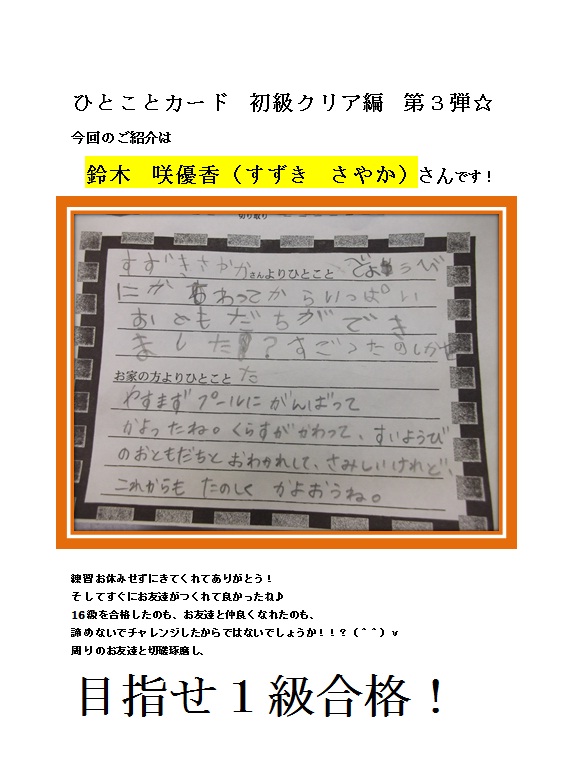 ひとことカード　初級クリア編　第３弾☆
今回のご紹介は
鈴木　咲優香（すずき　さやか）さんです！
切り取り
すずきさやかさんよりひとこと　どようび
にかわってからいっぱい
おともだちができ
ました！？すごったのしかせ
た
お家の方よりひとこと
やすまず プールに がんばって
かよったね。くらすが かわって、すいようび
のおともだちと おわかれして、さみしいけれど、
これからも たのしく かよおうね。
練習お休みせずにきてくれてありがとう！
そしてすぐにお友達がつくれて良かったね♪
16級を合格したのも、お友達と仲良くなれたのも、
諦めないでチャレンジしたからではないでしょうか！！？（＾＾）ｖ
周りのお友達と切磋琢磨し、
目指せ１級合格！